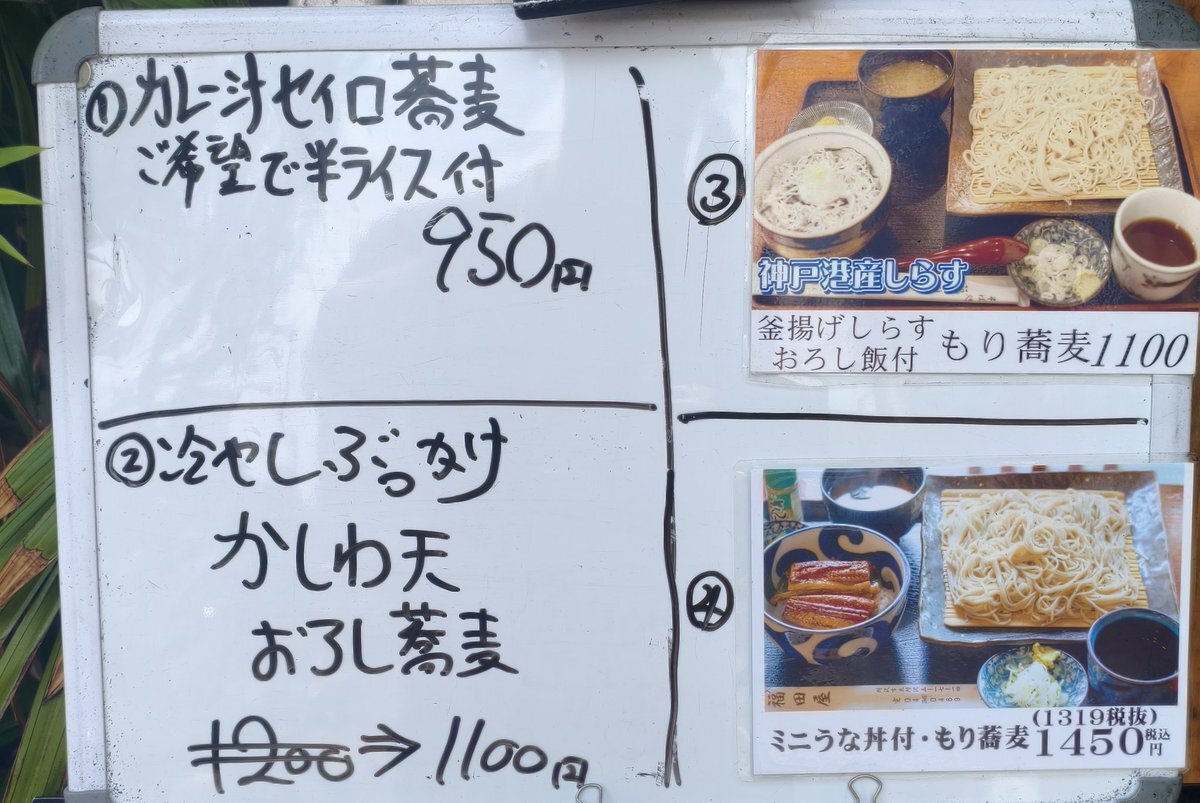 ①カレー汁セイロ蕎麦
ご希望で半ライス付
950円
②冷やしぶっかけ
かしわ天
おろし蕎麦
1200⇒1100円
③
神戸港産しらす
釜揚げしらす
おろし飯付
もり蕎麦1100
④
福田屋
(1319税抜)
ミニうな丼付・もり蕎麦1450税込円